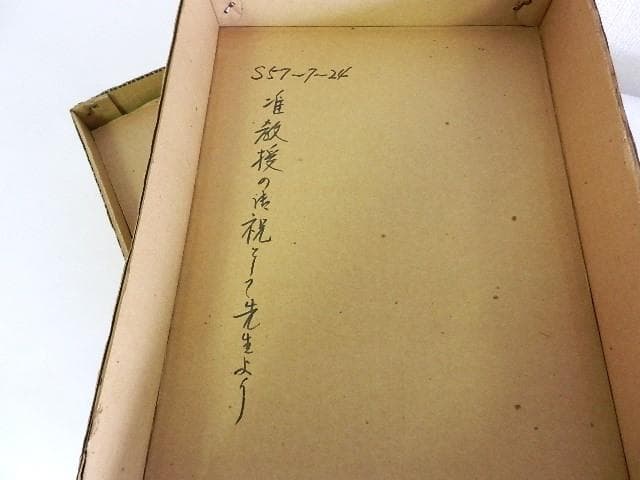 S57-7-24
准教授の御祝として先生より